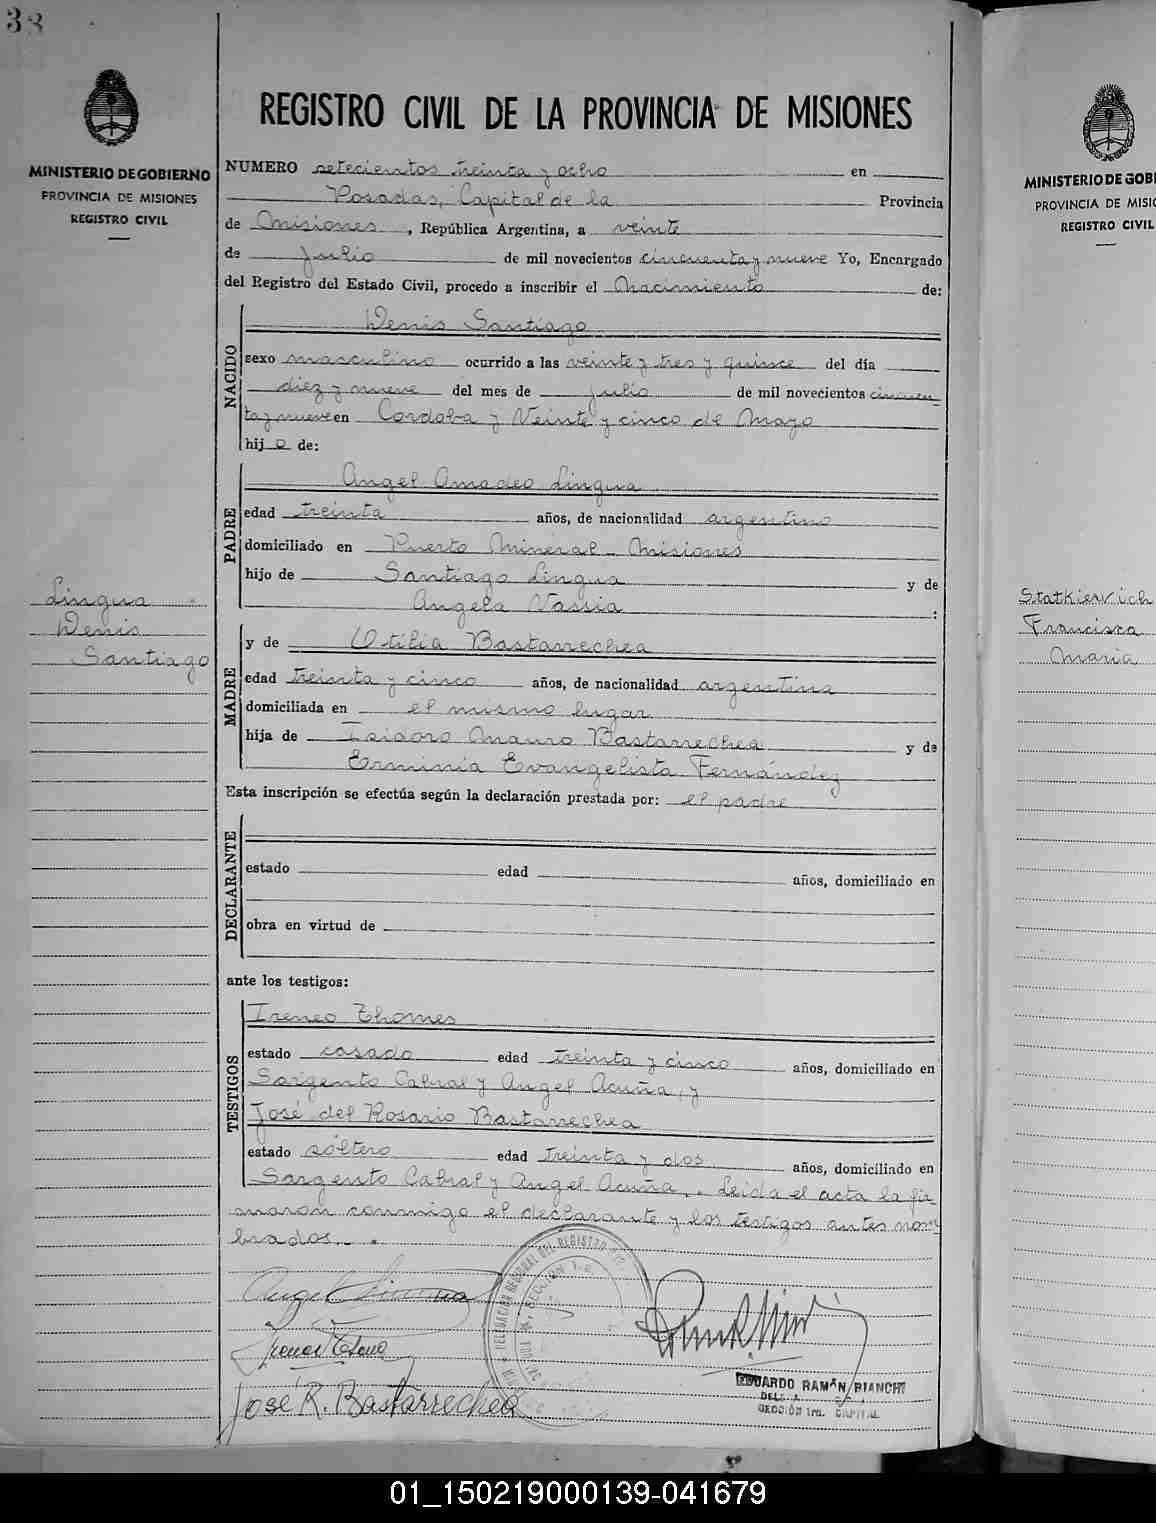 33
MINISTERIO DE GOBIERNO
PROVINCIA DE MISIONES
REGISTRO CIVIL
Lingua
Denis
Santiago
REGISTRO CIVIL DE LA PROVINCIA DE MISIONES
NUMERO setecientos treinta y ocho en
Posadas, Capital de la Provincia
de Misiones, República Argentina, a veinte
de Julio de mil novecientos cincuenta y nueve Yo, Encargado
del Registro del Estado Civil, procedo a inscribir el Nacimiento de:
NACIDO
Denis Santiago
sexo masculino ocurrido a las veinte y tres y quince del día
diez y nueve del mes de julio de mil novecientos cincuen-
ta y nueve en Cordoba y Veinte y cinco de Mayo
hijo de:
PADRE
Angel Amadeo Lingua
edad treinta años, de nacionalidad argentino
domiciliado en Puerto Mineral - Misiones
hijo de Santiago Lingua y de
Angela Vassia :
MADRE
y de Otilia Bastarrechea
edad treinta y cinco años, de nacionalidad argentina
domiciliada en el mismo lugar
hija de Isidoro Mauro Bastarrechea y de
Erminia Evangelista Fernández
Esta inscripción se efectúa según la declaración prestada por: el padre
DECLARANTE
estado edad años, domiciliado en
obra en virtud de
ante los testigos:
TESTIGOS
Ireneo Thomes
estado casado edad treinta y cinco años, domiciliado en
Sargento Cabral y Angel Acuña, y
José del Rosario Bastarrechea
estado sóltero edad treinta y dos años, domiciliado en
Sargento Cabral y Angel Acuña.. Leida el acta la fir-
maron conmigo el declarante y los testigos antes nom-
brados.-.
Angel Lingua
José R. Bastarrechea
DELEGACION REGIONAL DEL REGISTRO
SECCION 1a
EDUARDO RAMÓN BIANCHI
SECCIÓN 1ra. CAPITAL
MINISTERIO DE GOBI
PROVINCIA DE MISIO
REGISTRO CIVIL
Statkievich
Francisca
Maria
01_150219000139-041679